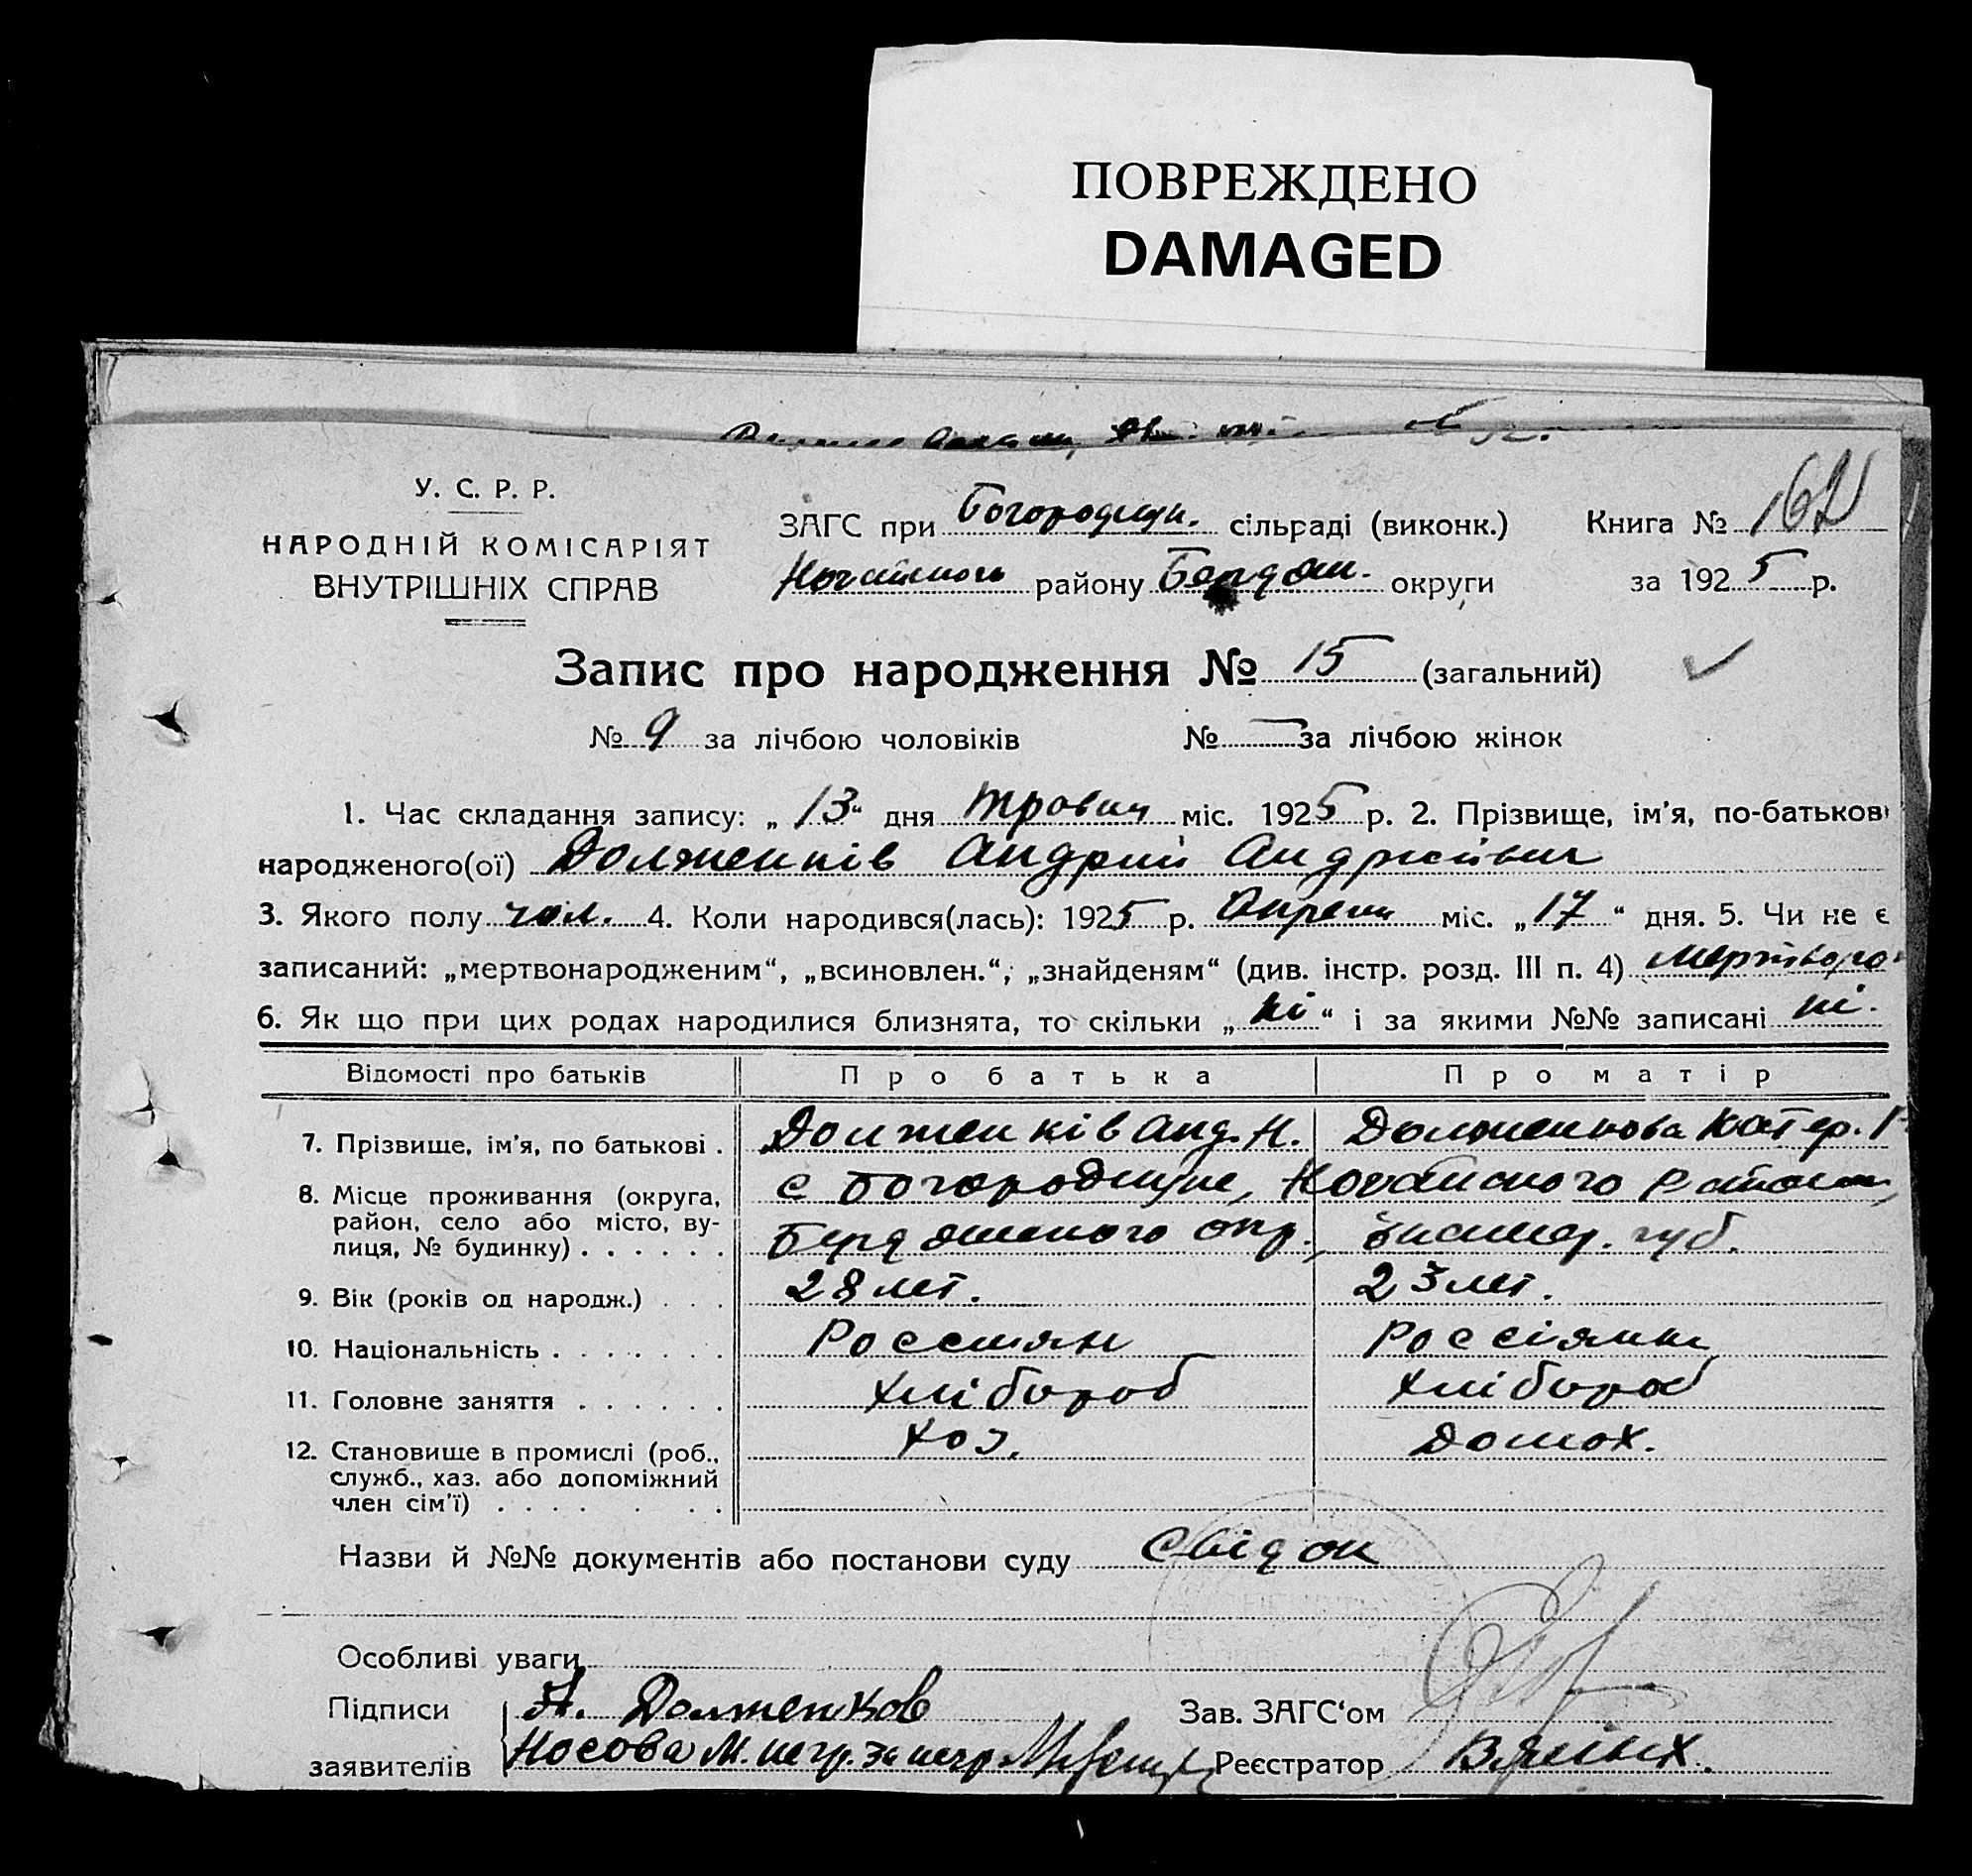 ПОВРЕЖДЕНО
DAMAGED
У. С. Р. Р.
НАРОДНІЙ КОМІСАРІЯТ
ВНУТРІШНІХ СПРАВ
ЗАГС при Богородицк. сільраді (виконк.)
Ногайського району Бердян. округи
Книга № 162
за 1925 р.
Запис про народження № 15 (загальний)
№ 9 за лічбою чоловіків № — за лічбою жінок
1. Час складання запису: „13“ дня міс. 1925 р. 2. Прізвище, ім'я, по-батькові
народженого(ої) Долженків Андрій Андрієвич
3. Якого полу чол. 4. Коли народився(лась): 1925 р. Апреля міс. „17“ дня. 5. Чи не є
записаний: „мертвонародженим“, „всиновлен.“, „знайденям“ (див. інстр. розд. III п. 4)
6. Як що при цих родах народилися близнята, то скільки „ні“ і за якими №№ записані ні.
Відомості про батьків Про батька Про матір
7. Прізвище, ім'я, по батькові . Долженків Анд. Н. Долженкова Катер. Г.
8. Місце проживання (округа, район, село або місто, вулиця, № будинку) . . . . . . с Богородицке, Ногайського Району,
Бердянського окр., губ.
9. Вік (років од народж.) . . . 28 лет. 23 лет.
10. Національність . . . . . . . Россиян Россіянка
11. Головне заняття . . . . . . Хлібороб Хлібороб
12. Становище в промислі (роб., служб., хаз. або допоміжний член сім'ї) . . . . . . . Хоз. Домох.
Назви й №№ документів або постанови суду Свідок
Особливі уваги
Підписи А. Долженков Зав. ЗАГС'ом
заявителів Носова М. негр. за негр. Реєстратор